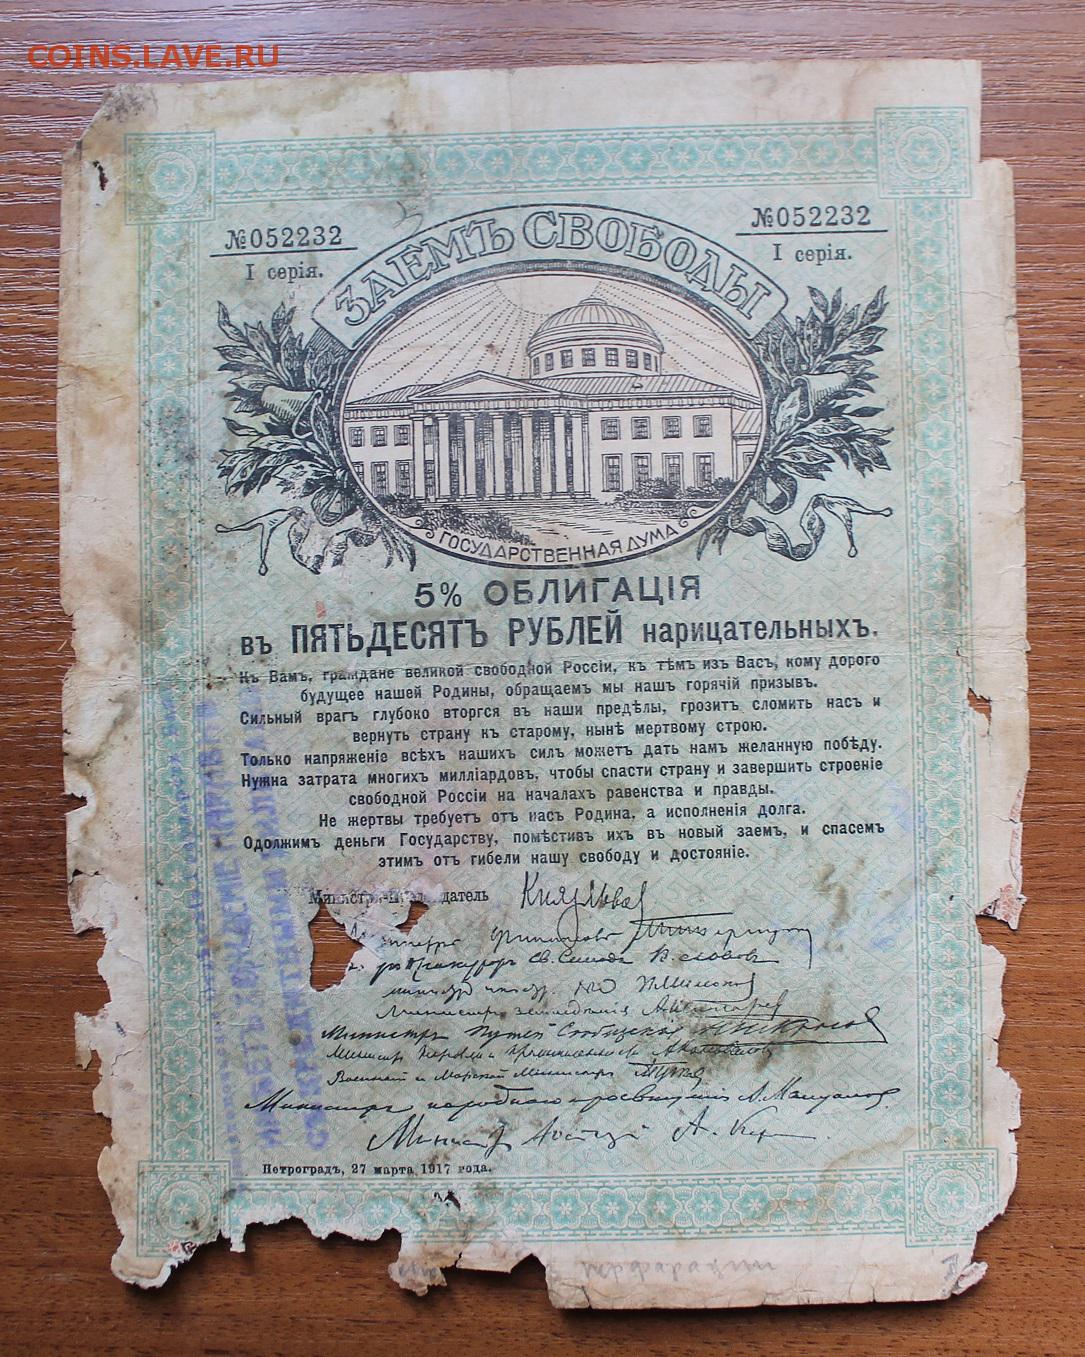 COINS.LAVE.RU
№052232
I серія.
№052232
I серія.
ЗАЕМЪ СВОБОДЫ
ГОСУДАРСТВЕННАЯ ДУМА
5% ОБЛИГАЦІЯ
въ ПЯТЬДЕСЯТЪ РУБЛЕЙ нарицательныхъ.
Къ Вамъ, граждане великой свободной Россіи, къ тѣмъ изъ Васъ, кому дорого
будущее нашей Родины, обращаемъ мы нашъ горячій призывъ.
Сильный врагъ глубоко вторгся въ наши предѣлы, грозитъ сломить насъ и
вернуть страну къ старому, нынѣ мертвому строю.
Только напряженіе всѣхъ нашихъ силъ можетъ дать намъ желанную побѣду.
Нужна затрата многихъ милліардовъ, чтобы спасти страну и завершить строеніе
свободной Россіи на началахъ равенства и правды.
Не жертвы требуетъ отъ насъ Родина, а исполненія долга.
Одолжимъ деньги Государству, помѣстивъ ихъ въ новый заемъ, и спасемъ
этимъ отъ гибели нашу свободу и достояніе.
Князь Львов
финансовъ
Св. Синода В. Львов
Министръ земледѣлія
Министръ Путей Сообщенія
Военный и Морской Министръ
Министръ народнаго просвещенія А. Мануилов
Министр юстиціи А. Кер
Петроградъ, 27 марта 1917 года.